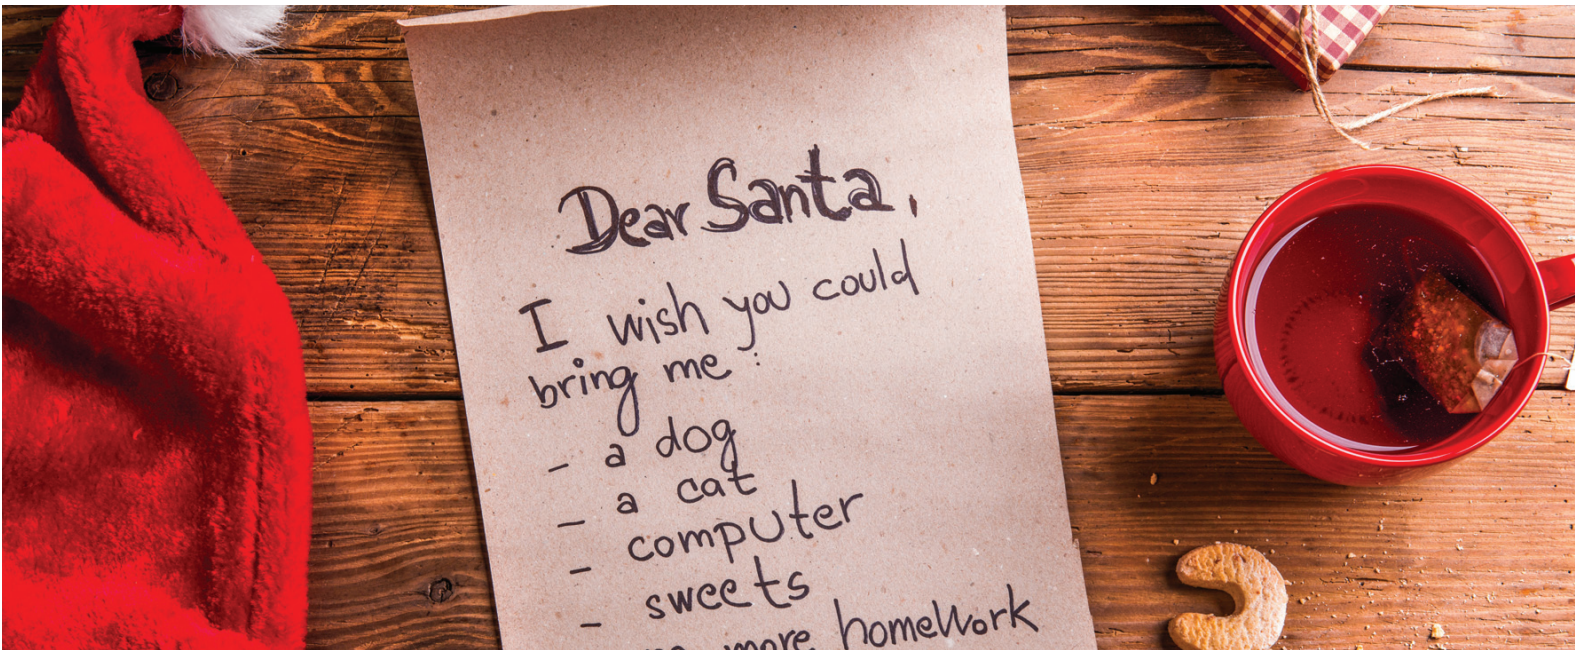 Dear Santa,
I wish you could
bring me :
- a dog
- a cat
- computer
- sweets
no more homework